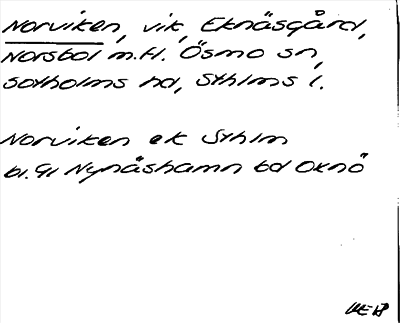 Norviken, vik, Eknäsgård,
Norsbol m.fl. Ösmo sn,
Sotholms hd, Sthlms l.
Norviken ek Sthlm
bl. 91 Nynäshamn bd Oknö